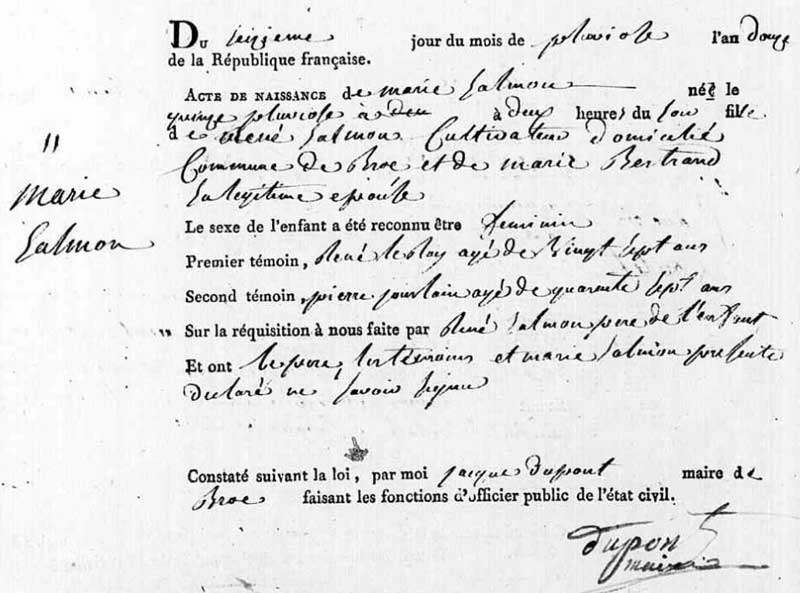 Du seizieme jour du mois de pluviose l'an douze
de la République française.
ACTE DE NAISSANCE de marie Salmon née le
quinze pluviose à deu à deux heures du soir fille
de rené Salmon Cultivateur domicilié
Commune de Broc et de marie Bertrand
Sa legitime epouse
"
marie
Salmon
Le sexe de l'enfant a été reconnu être feminin
Premier témoin, René leroy agé de vingt sept ans
Second témoin, pierre jourdain agé de quarente sept ans
" Sur la réquisition à nous faite par René Salmon pere de l'enfant
Et ont le pere, les temoins et marie Salmon presente
declaré ne savoir signer
Constaté suivant la loi, par moi jacque dupont maire de
Broc faisant les fonctions d'officier public de l'état civil.
dupont
maire